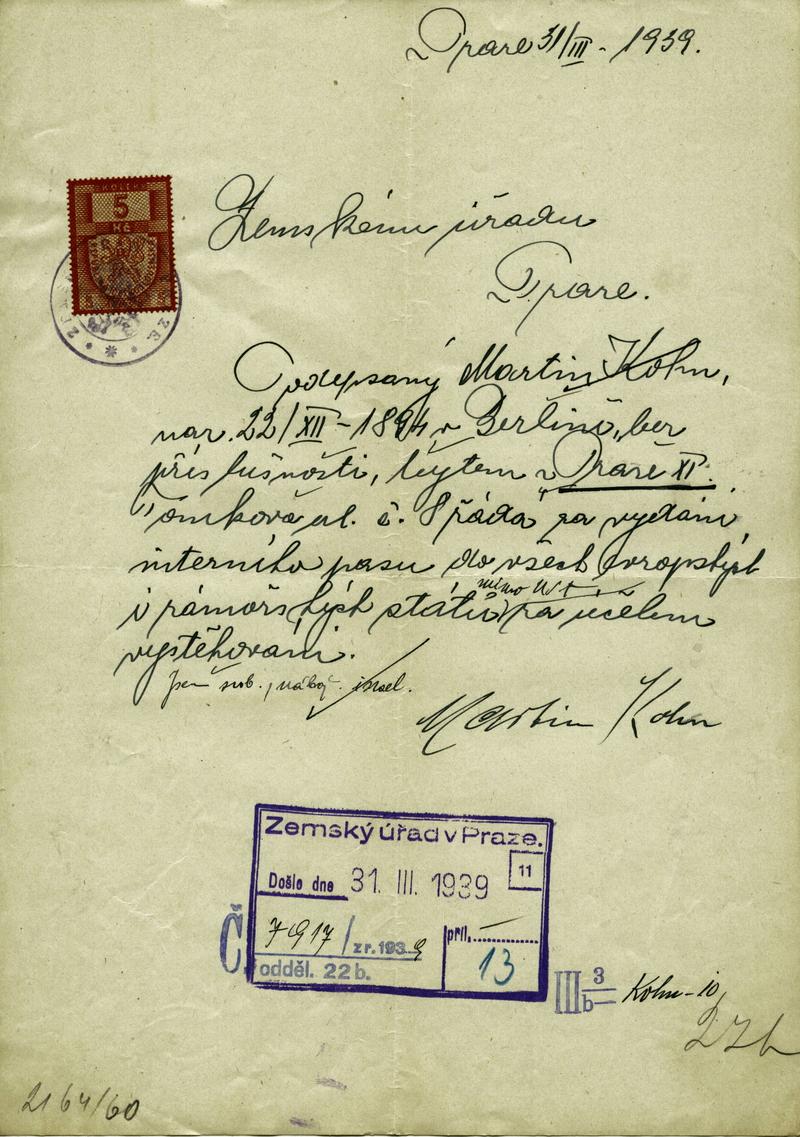 Praze 31/III - 1939.
KOLEK
5
Kč
Zemskému úřadu
Praze.
Podepsaný Martin Kohn,
nar. 22/XII - 1894 v Berlíně, bez
příslušnosti, bytem v Praze XI.
Tomkova ul. č. 8 žádá za vydání
interního pasu do všech evropských
mimo
i zámořských států za účelem
vystěhování.
Jsem svob., nábož. israel.
Martin Kohn
Zemský úřad v Praze.
11
Došlo dne 31. III. 1939
Č. 7917 / z r. 1939
příl.
odděl. 22 b.
13
III 3 b- Kohn - 10
2164/60